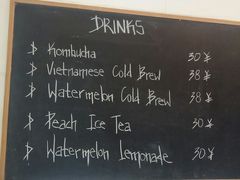 DRINKS
Kombucha 30 ¥
Vietnamese Cold Brew 38 ¥
Watermelon Cold Brew 38 ¥
Peach Ice Tea 30 ¥
Watermelon Lemonade 30 ¥